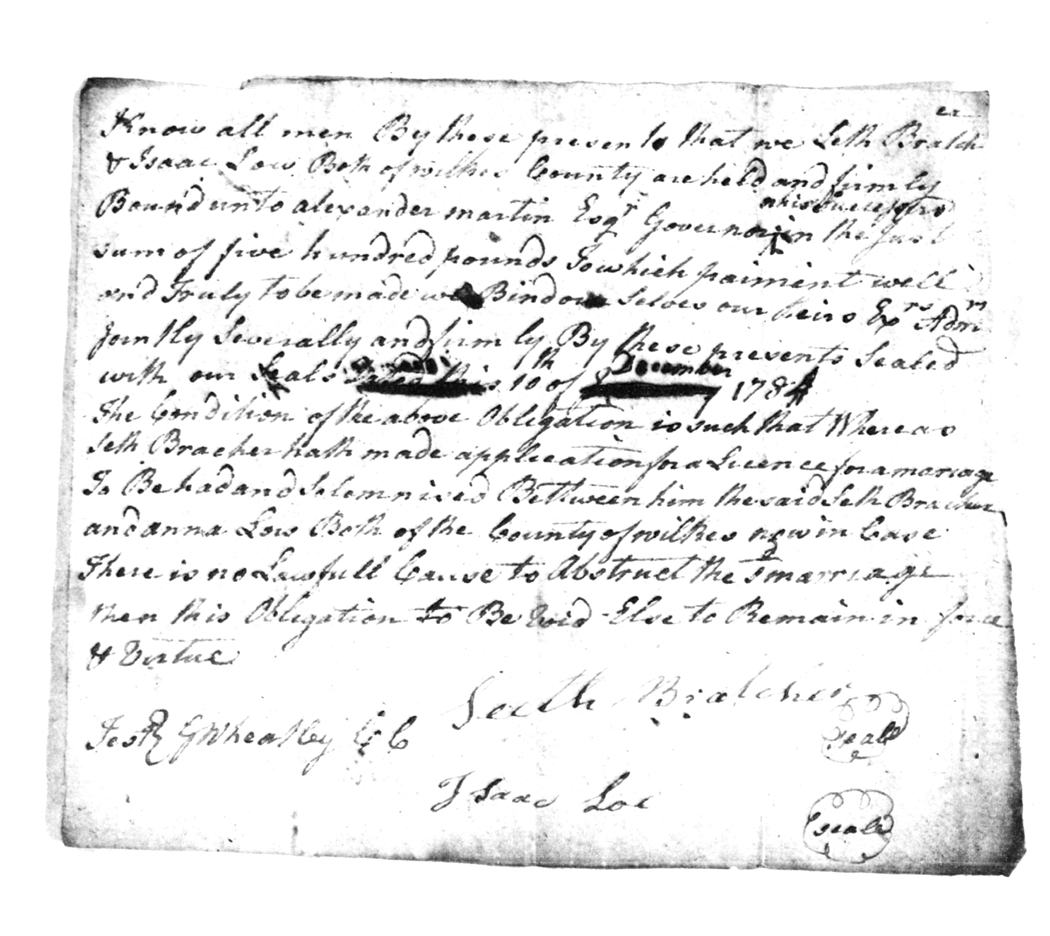 Know all men By these presents that we Seth Bratch er
& Isaac Low Both of wilkes County are held and firmly
Bound unto alexander martin Esqr Governor & his Successors in the Just
sum of five hundred pounds To which paiment well
and Truly to be made we Bind our Selves our heirs Exrs Admrs
Jointly Severally and firmly By these presents Sealed
with our Seals this 10th of December 1784
The Condition of the above Obligation is such that Whereas
Seth Bracher hath made application for a Licence for a marriage
To Be had and Solemnised Bettween him the said Seth Bracher
and anna Low Both of the County of wilkes now in Case
There is no Lawfull Cause to Abstruct the sd marriage
then this Obligation to Be Void Else to Remain in force
& Virtue
Seeth Bratcher seale
Test G Wheatley C C
Isaac Loe seale